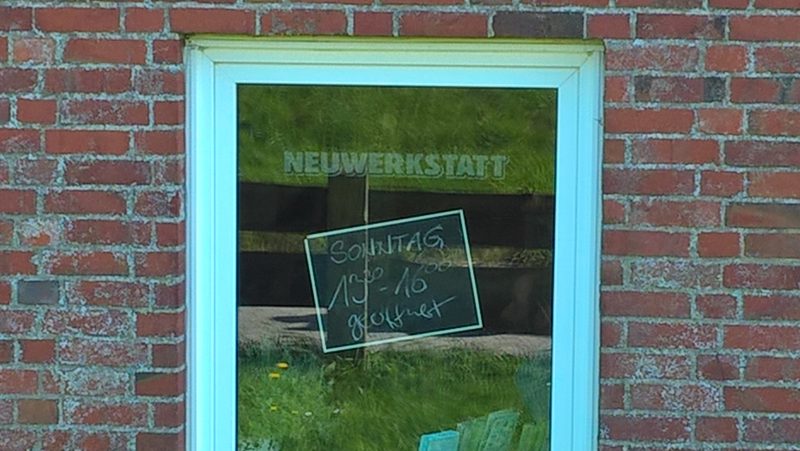 NEUWERKSTATT
SONNTAG
13³⁰-16⁰⁰
geöffnet